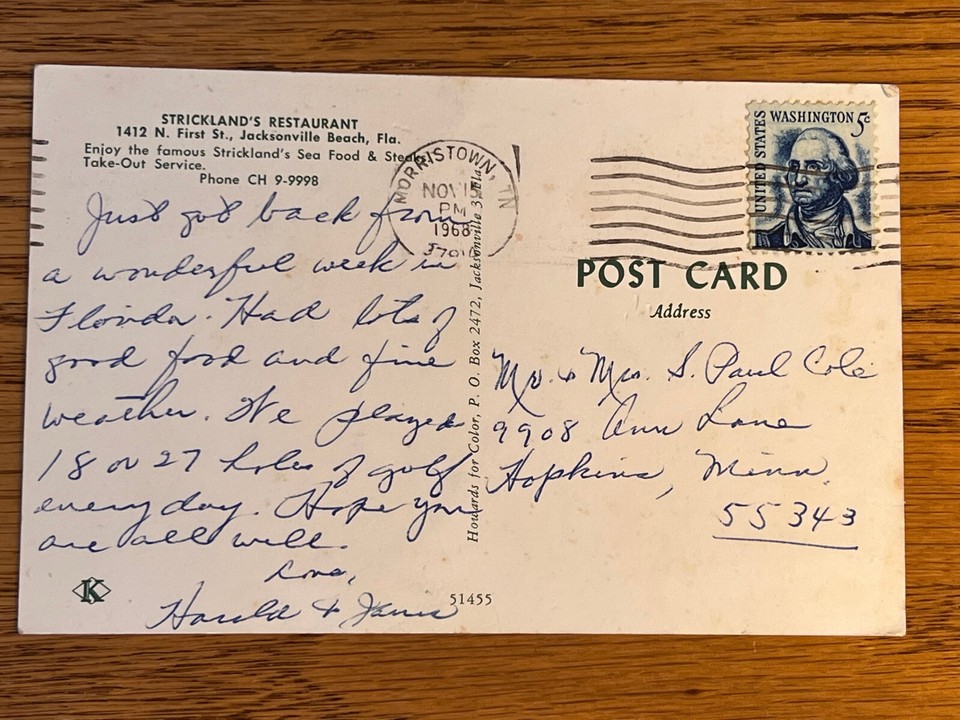 STRICKLAND'S RESTAURANT
1412 N. First St., Jacksonville Beach, Fla.
Enjoy the famous Strickland's Sea Food & Steak
Take-Out Service.
Phone CH 9-9998
Just got back from
a wonderful week in
Florida. Had lots of
good food and fine
weather. We played
18 or 27 holes of golf
every day. Hope you
are all well.
Love,
Harold & Janis
K
Howards for Color, P. O. Box 2472, Jacksonville 3, Fla.
51455
MORRISTOWN, TN
NOV
PM
1968
UNITED STATES
WASHINGTON 5c
POST CARD
Address
Mr. & Mrs. S. Paul Cole
9908 Ann Lane
Hopkins, Minn.
55343